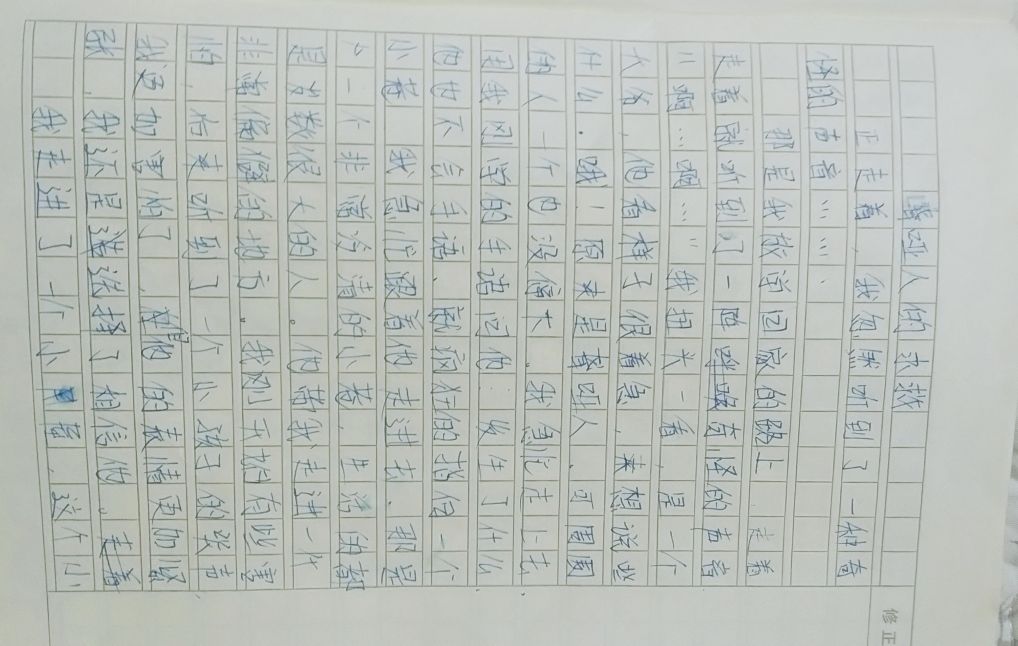 聋哑人的求救
正走着，我忽然听到了一种奇
怪的声音……
那是我放学回家的路上 走着
走着就听到了一阵奇怪的声音
“啊…啊…”我扭头一看，是一个
大爷，他看样子很着急，来想说些
什么。哦！原来是聋哑人，可周围
的人一个也没停下。我急忙走上去
用我刚学的手语问他：发生了什么
他也不会手语，就疯狂的指 一个
小巷 我急忙跟着他走过去。那是
一个非常冷清的小巷，生活的都
是岁数很大的人。他带我走进一个
非常偏僻的地方。我刚开始有些害
怕，后来听到了一个小孩子的哭声
我更加害怕了，但他的表情更加紧
张，我还是选择了相信他。走着
我走进了一个小巷，这个小
修正